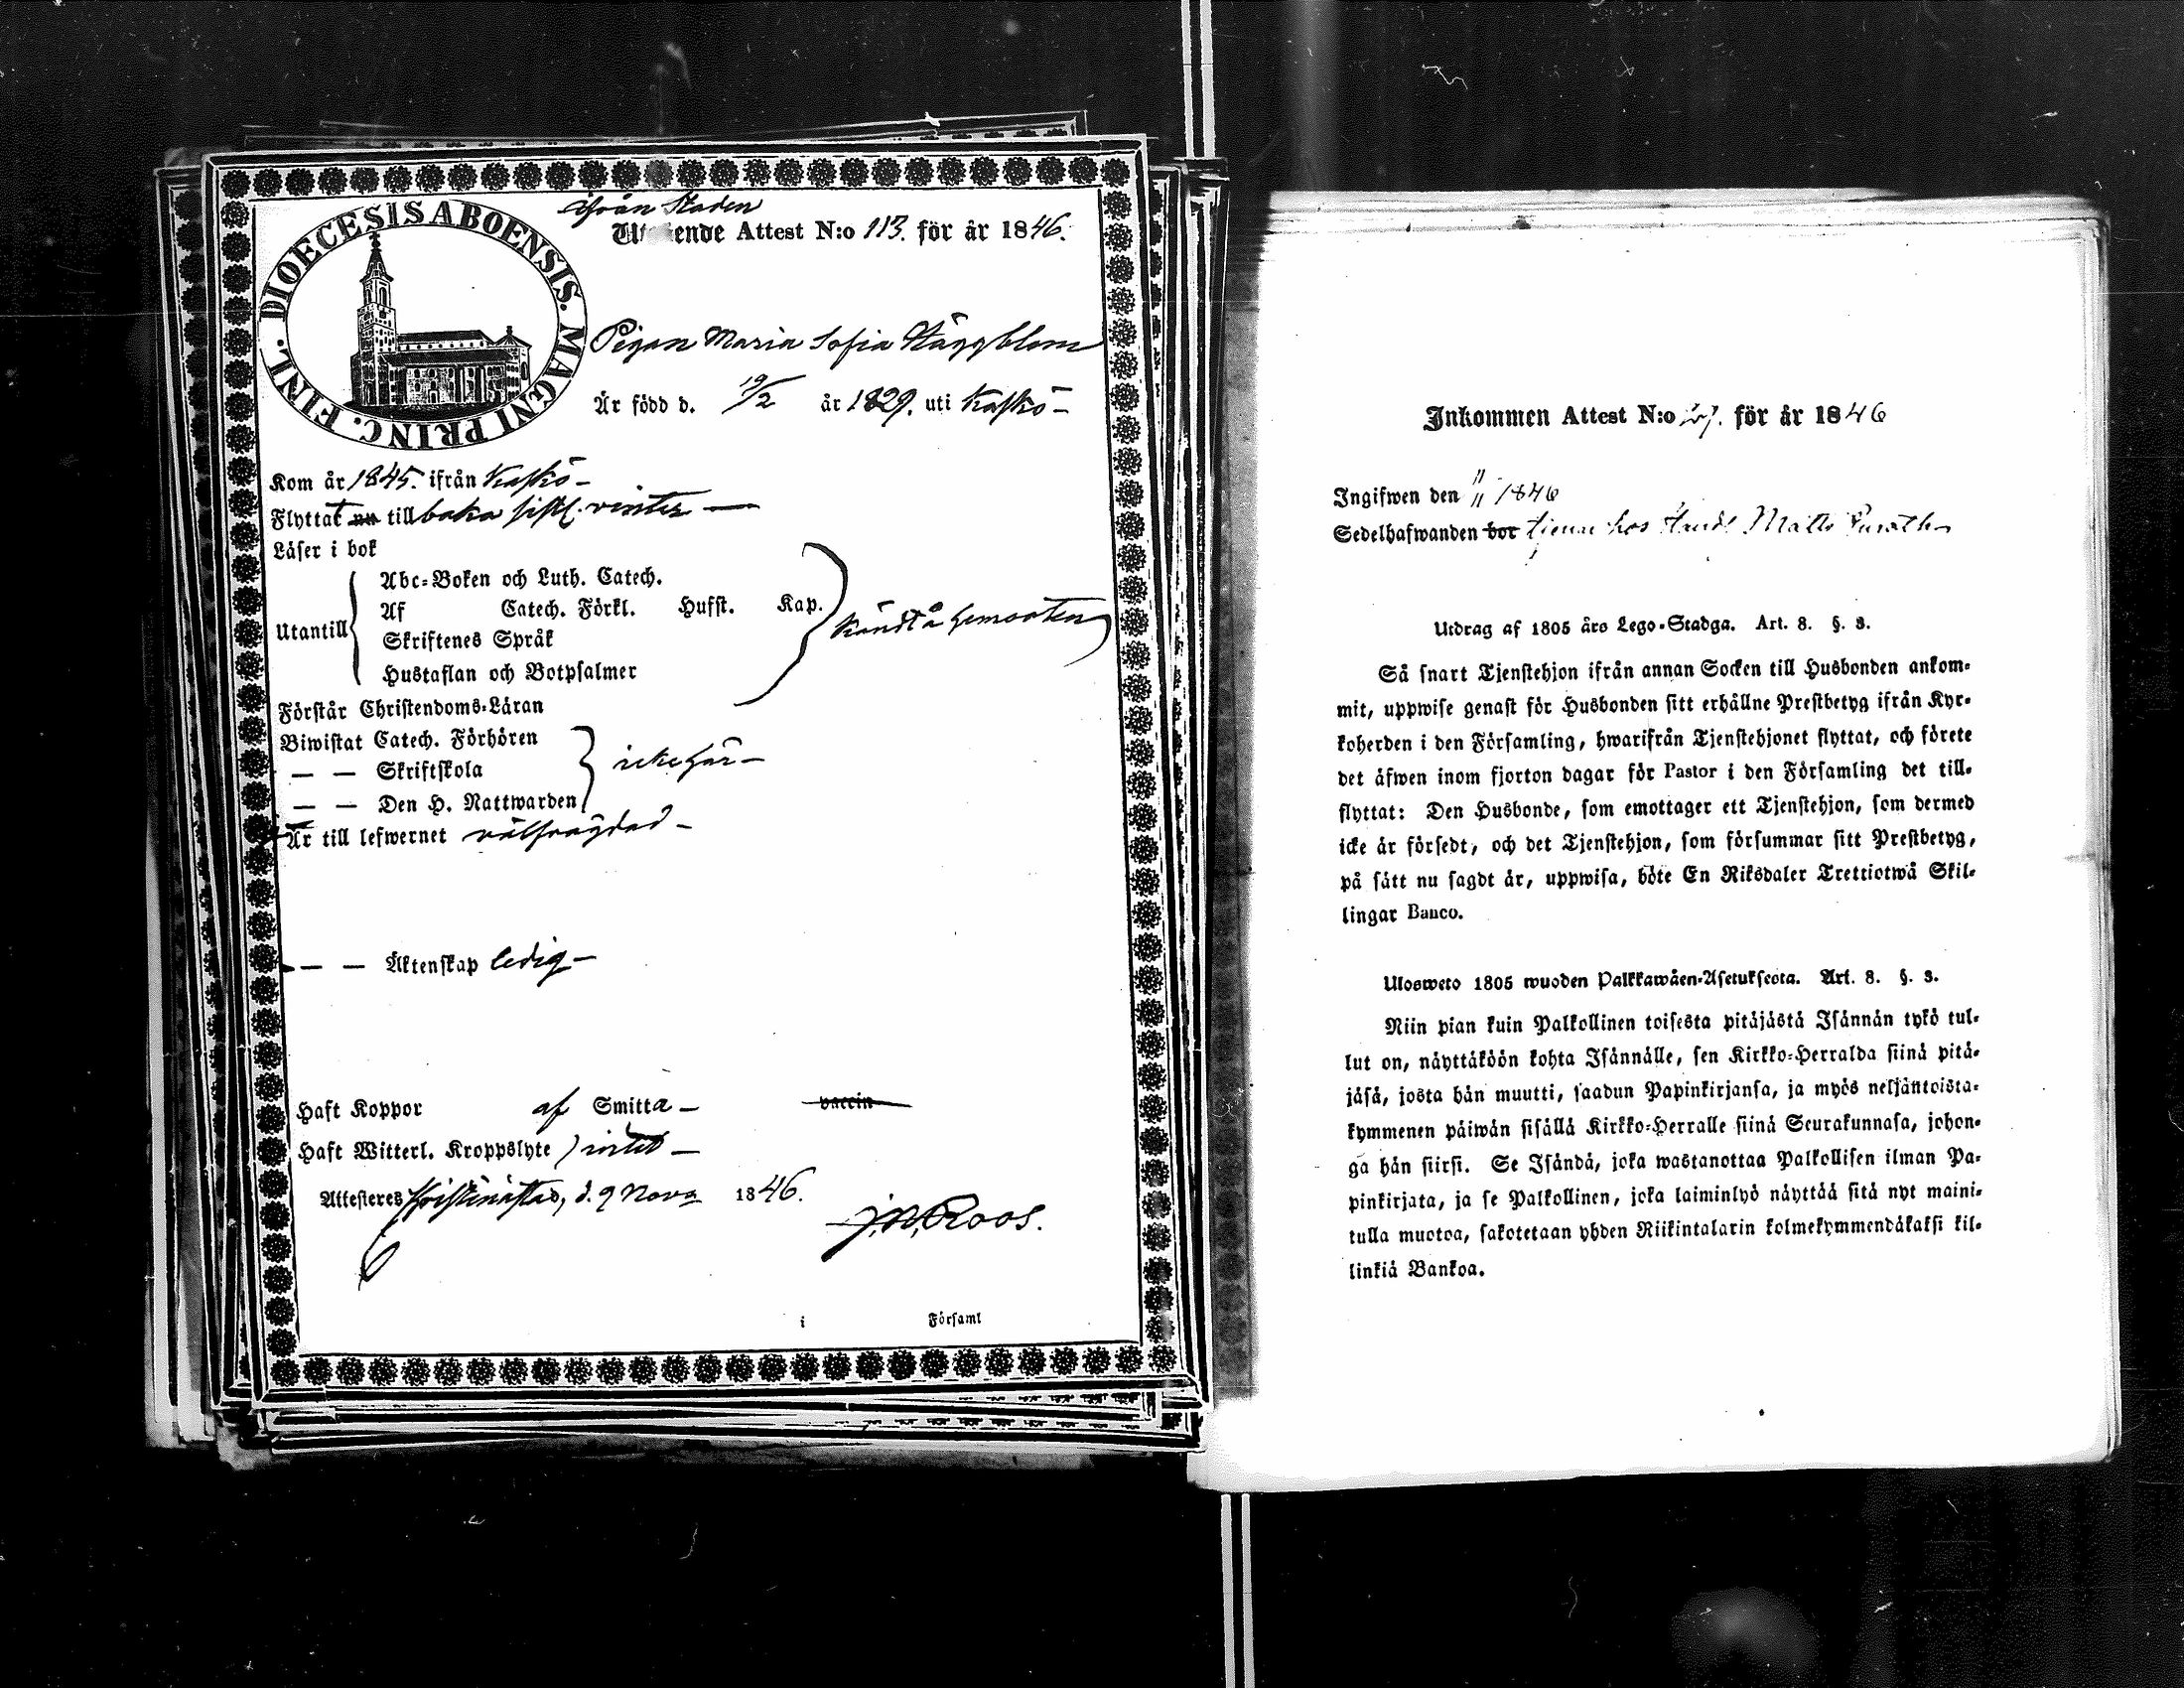 DIOECESIS ABOENSIS. MAGNI PRINC. FINL.
ifrån Staden
Ut ende Attest N:o 113. för år 1846.
Pigan Maria Sofia Häggblom
Är född d. 19/2 år 1829. uti Kaskö-
Kom år 1845. ifrån Kaskö-
Flyttat nu tillbaka sistl. vinter —
Läser i bok
Utantill
Abc-Boken och Luth. Catech.
Af Catech. Förkl. Husst. Kap.
Skriftenes Språk
Hustaflan och Botpsalmer
kändt å hemorten
Förstår Christendoms-Läran
Biwistat Catech. Förhören
— — Skriftskola
— — Den H. Nattwarden
icke här —
Är till lefwernet välfrägdad -
— — Äktenskap ledig —
Haft Koppor af Smitta — vaccin
Haft Witterl. Kroppslyte intet —
Attesteres Christinestad, d. 9 Nov. 1846.
J.N. Roos.
i Församl
Inkommen Attest N:o för år 1846
Ingifwen den 11/11 1846
Sedelhafwanden bor tjenar hos Handl Matts
Utdrag af 1805 års Lego-Stadga. Art. 8. §. 3.
Så snart Tjenstehjon ifrån annan Socken till Husbonden ankom-
mit, uppwise genast för Husbonden sitt erhållne Prestbetyg ifrån Kyr-
koherden i den Församling, hwarifrån Tjenstehjonet flyttat, och förete
det äfwen inom fjorton dagar för Pastor i den Församling det till-
flyttat: Den Husbonde, som emottager ett Tjenstehjon, som dermed
icke är försedt, och det Tjenstehjon, som försummar sitt Prestbetyg,
på sätt nu sagdt är, uppwisa, böte En Riksdaler Trettiotwå Skil-
lingar Banco.
Ulosweto 1805 wuoden Palkkawäen-Asetuksesta. Art. 8. §. 3.
Niin pian kuin Palkollinen toisesta pitäjästä Isännän tykö tul-
lut on, näyttäköön kohta Isännälle, sen Kirkko-Herralda siinä pitä-
jäsä, josta hän muutti, saadun Papinkirjansa, ja myös neljäntoista-
kymmenen päiwän sisällä Kirkko-Herralle siinä Seurakunnasa, johon-
ga hän siirsi. Se Isändä, joka wastanottaa Palkollisen ilman Pa-
pinkirjata, ja se Palkollinen, joka laiminlyö näyttää sitä nyt maini-
tulla muotoa, sakotetaan yhden Riikintalarin kolmekymmendäkaksi kil-
linkiä Bankoa.